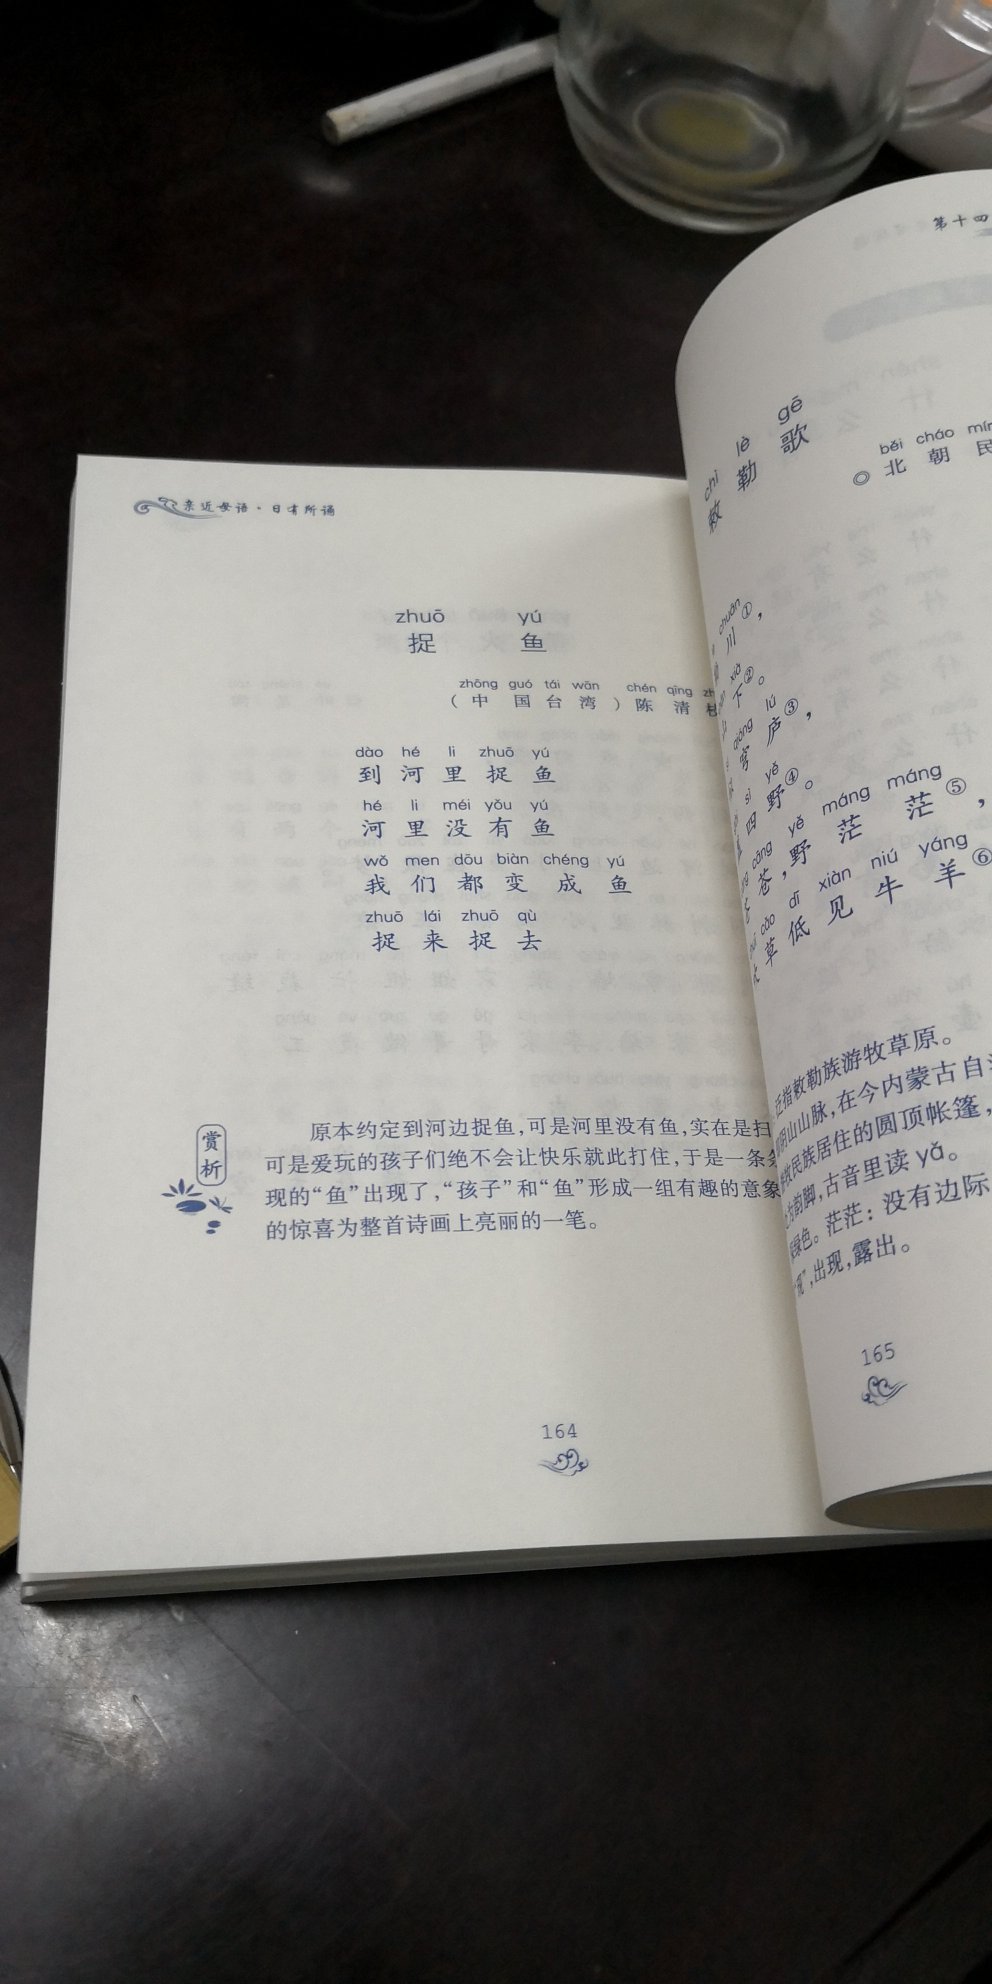 亲近母语·日有所诵
zhuō yú
捉 鱼
zhōng guó tái wān chén qīng
（中国台湾）陈清
dào hé li zhuō yú
到河里捉鱼
hé li méi yǒu yú
河里没有鱼
wǒ men dōu biàn chéng yú
我们都变成鱼
zhuō lái zhuō qù
捉来捉去
赏析
原本约定到河边捉鱼,可是河里没有鱼,实在是扫
可是爱玩的孩子们绝不会让快乐就此打住,于是一条
现的“鱼”出现了,“孩子”和“鱼”形成一组有趣的意象
的惊喜为整首诗画上亮丽的一笔。
164
第十四
chì lè gē
敕勒歌
běi cháo mín
◎北朝民
chuān
川①，
xià
下②。
qióng lú
穹庐③，
sì yě
四野④。
cāng yě máng máng
苍,野茫茫⑤，
cǎo dī xiàn niú yáng
草低见牛羊⑥
指敕勒族游牧草原。
阴山山脉,在今内蒙古自
民族居住的圆顶帐篷，
韵脚,古音里读 yǎ。
绿色。茫茫：没有边际
现”,出现,露出。
165